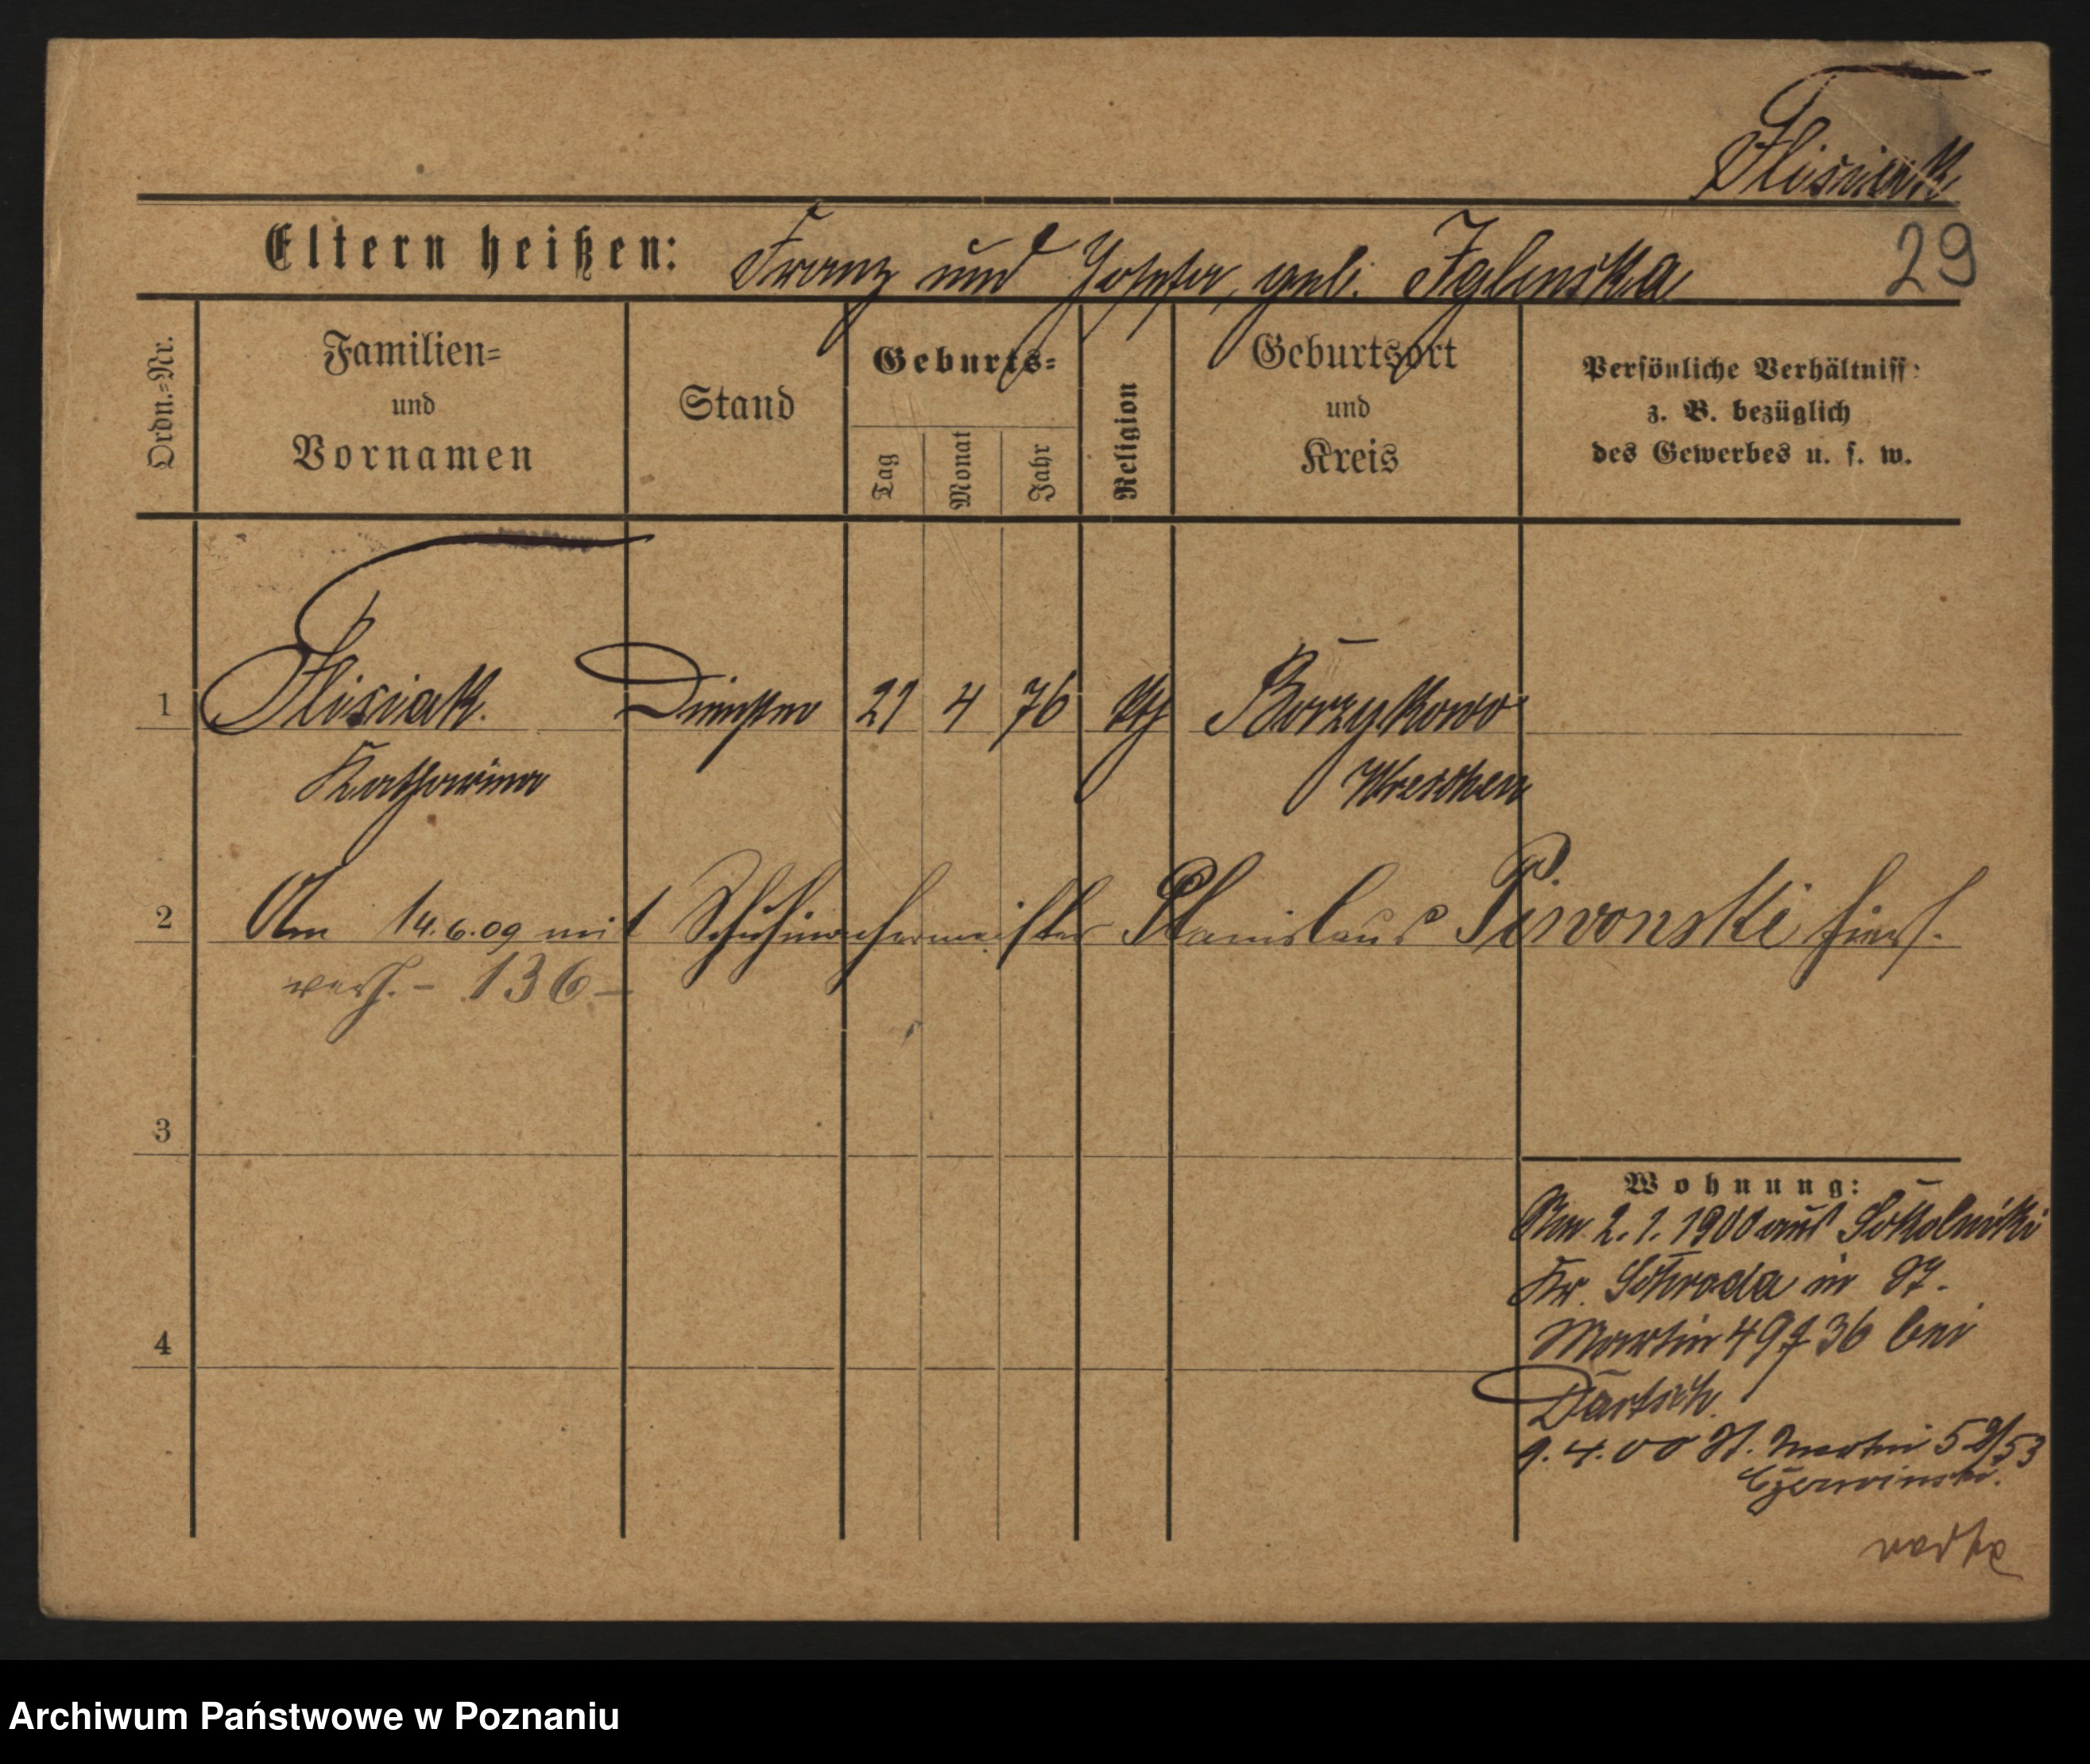 Flisiak
Eltern heißen: Franz und Josefa, geb. Iglenska
29
Ordn.=Nr.
Familien=
und
Vornamen
Stand
Geburts=
Tag
Monat
Jahr
Religion
Geburtsort
und
Kreis
Persönliche Verhältniss:
z. B. bezüglich
des Gewerbes u. s. w.
1 Flisiak. 21 4 76 kth Borzykowo
Katharina Wreschen
2 Am 14.6.09 mit Schuhmachermeister Stanislaus Piwonski hier
verh. - 136 -
3
4
Wohnung:
Am 2.1.1900 aus Sokolniki
Kr. Schroda in St.
Martin 49 36 bei
Dartsch.
9.4.00 St. Martin 52/53
Czerwinski.